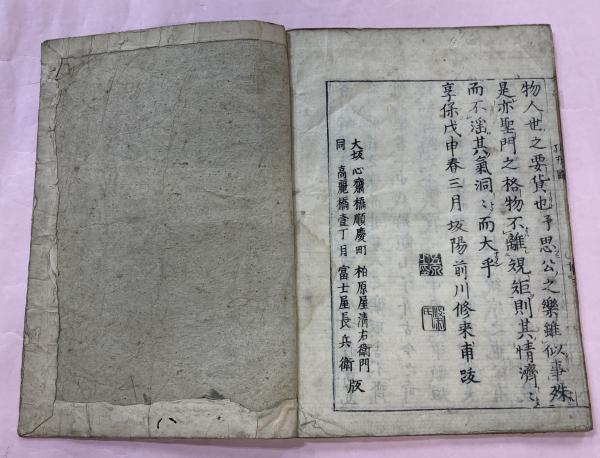 物人世之要貨也予思公之樂雖似事殊
是亦聖門之格物不離規矩則其情濟〻
而不滛其氣洞〻而大乎
享保戊申春三月坂陽前川修來甫跋
大坂心齋橋順慶町 柏原屋清右衛門
同 高麗橋壹丁目 冨士屋長兵衛 版